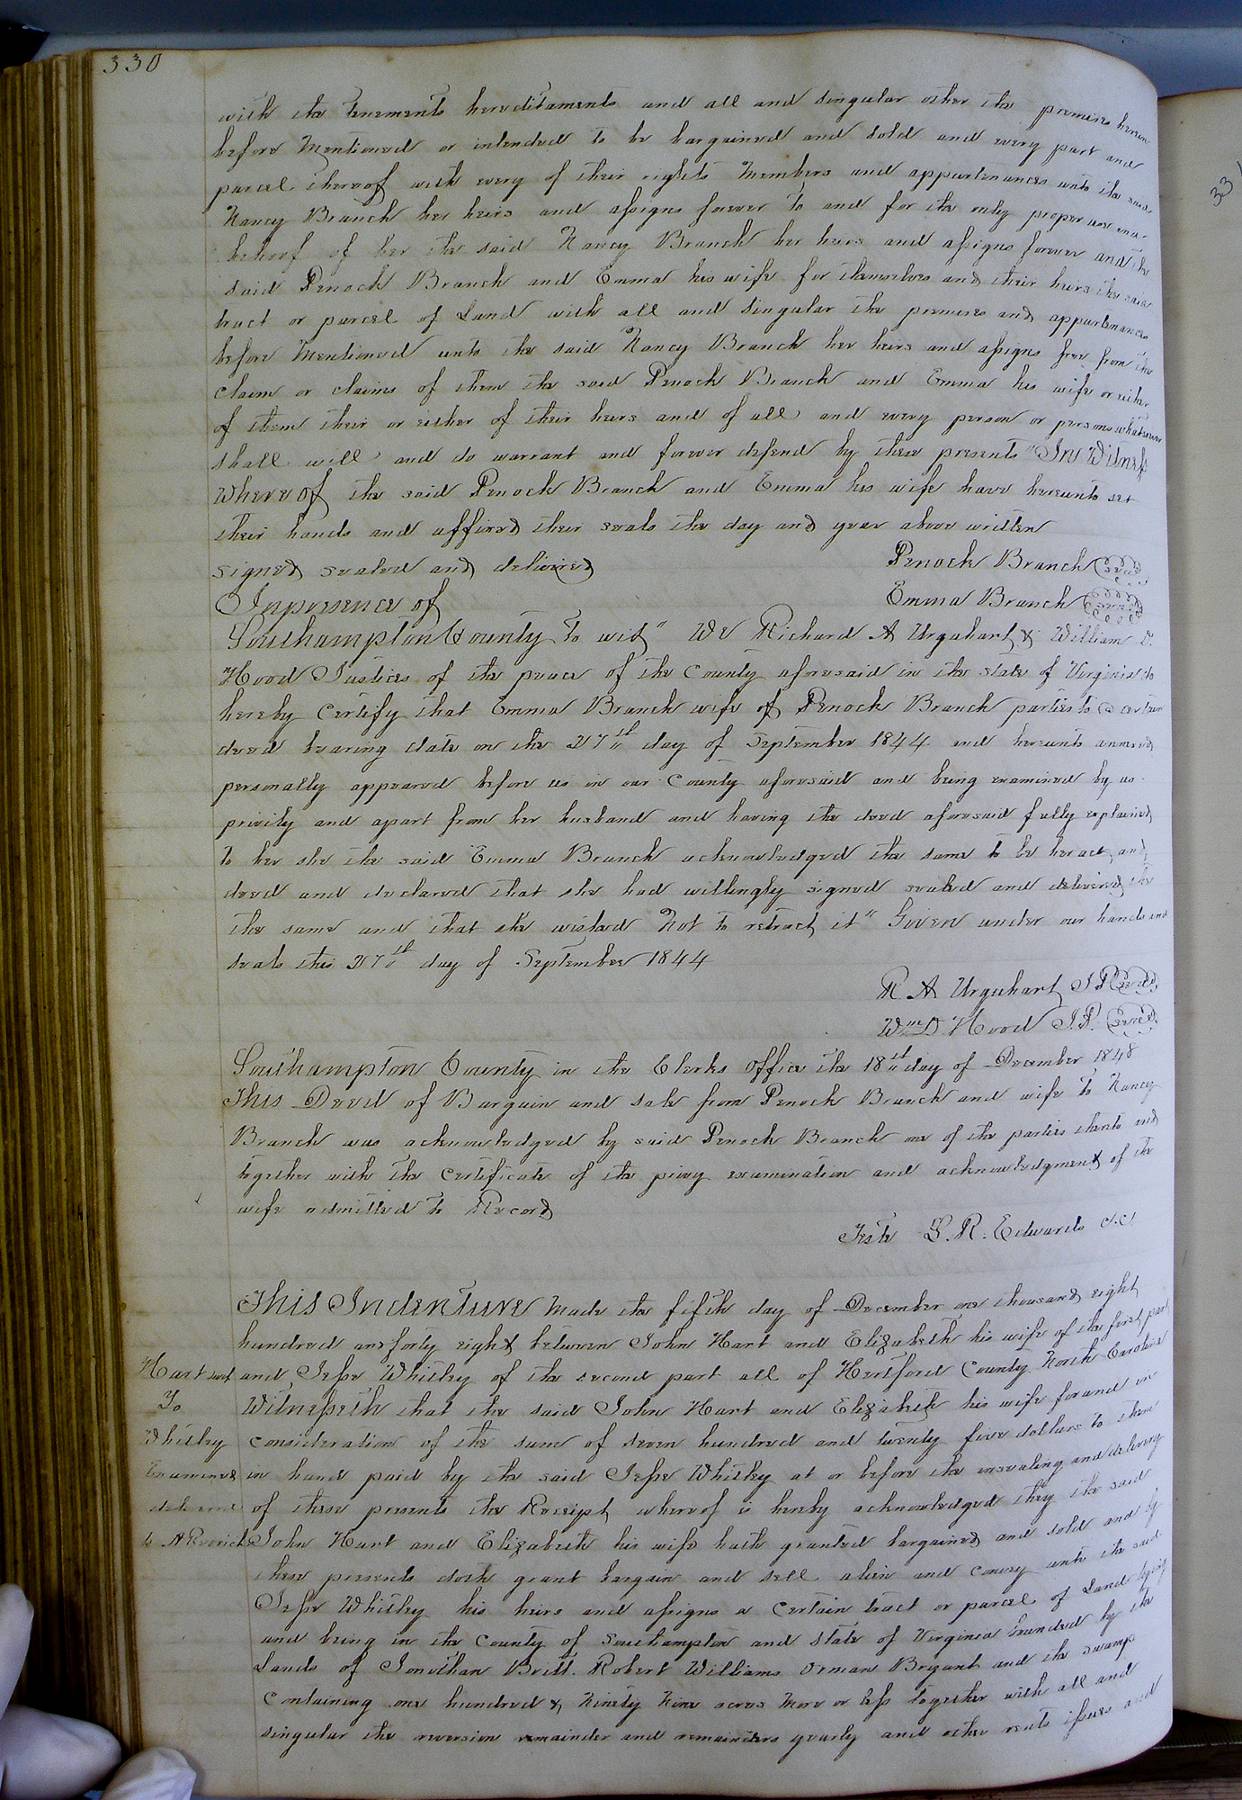 330
with the tenements hereditaments and all and singular other the premises herein
before Mentioned or intended to be bargained and sold and every part and
parcel thereof with every of their rights Members and appurtenances unto the said
Nancy Branch her heirs and assigns forever To and for the only proper use and
behoof of her the said Nancy Branch her heirs and assigns forever and the
said Penock Branch and Emma his wife for themselves and their heirs the said
tract or parcel of Land with all and singular the premises and appurtenances
before Mentioned unto the said Nancy Branch her heirs and assigns free from the
claim or claims of them the said Penock Branch and Emma his wife or either
of them their or either of their heirs and of all and every person or persons whatsoever
shall will and do warrant and forever defend by these presents "In Witness
Whereof the said Penock Branch and Emma his wife have hereunto set
their hands and affixed their seals the day and year above written
signed sealed and delivered Penock Branch (seal)
In presence of Emma Branch (seal)
Southampton County to wit" We Richard A Urquhart & William D.
Hood Justices of the peace of the County aforesaid in the state of Virginia do
hereby Certify that Emma Branch wife of Penock Branch parties to a certain
deed bearing date on the 27th day of September 1844 and hereunto annexed
personally appeared before us in our County aforesaid and being examined by us
privily and apart from her husband and having the deed aforesaid fully explained
to her she the said Emma Branch acknowledged the same to be her act and
deed and declared that she had willingly signed sealed and delivered the
the same and that she wished Not to retract it" Given under our hands and
seals this 27th day of September 1844
R A Urquhart J P (seal)
Wm D Hood J.P. (seal)
Southampton County in the Clerks Office the 18th day of December 1848
This Deed of Bargain and sale from Penock Branch and wife to Nancy
Branch was acknowledged by said Penock Branch one of the parties thereto and
together with the Certificate of the privy examination and acknowledgment of the
wife admitted to Record
Teste L. R. Edwards c.c
This Indenture Made the fifth day of December one thousand eight
hundred and forty eight between John Hart and Elizabeth his wife of the first part
Hart and and Jesse Whitley of the second part all of Hertford County North Carolina
To Witnesseth that the said John Hart and Elizabeth his wife for and in
Whitley consideration of the sum of seven hundred and twenty five dollars to them
Examined in hand paid by the said Jesse Whitley at or before the ensealing and delivery
delivered of these presents the Receipt whereof is hereby acknowledged they the said
to John Hart and Elizabeth his wife hath granted bargained and sold and by
these presents doth grant bargain and sell alien and convey unto the said
Jesse Whitley his heirs and assigns a Certain tract or parcel of Land lying
and being in the County of Southampton and state of Virginia bounded by the
Lands of Jonathan Britt. Robert Williams Orman Bryant and the swamp
Containing one hundred & Ninety Nine acres More or less together with all and
singular the reversion remainder and remainders yearly and other rents issues and
331